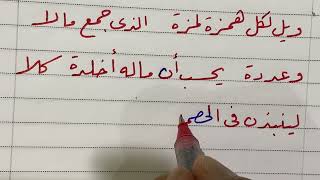 ويل لكل همزة لمزة الذى جمع مالا
وعددة يحسب أن ماله أخلدة كلا
لينبذن فى الحصم